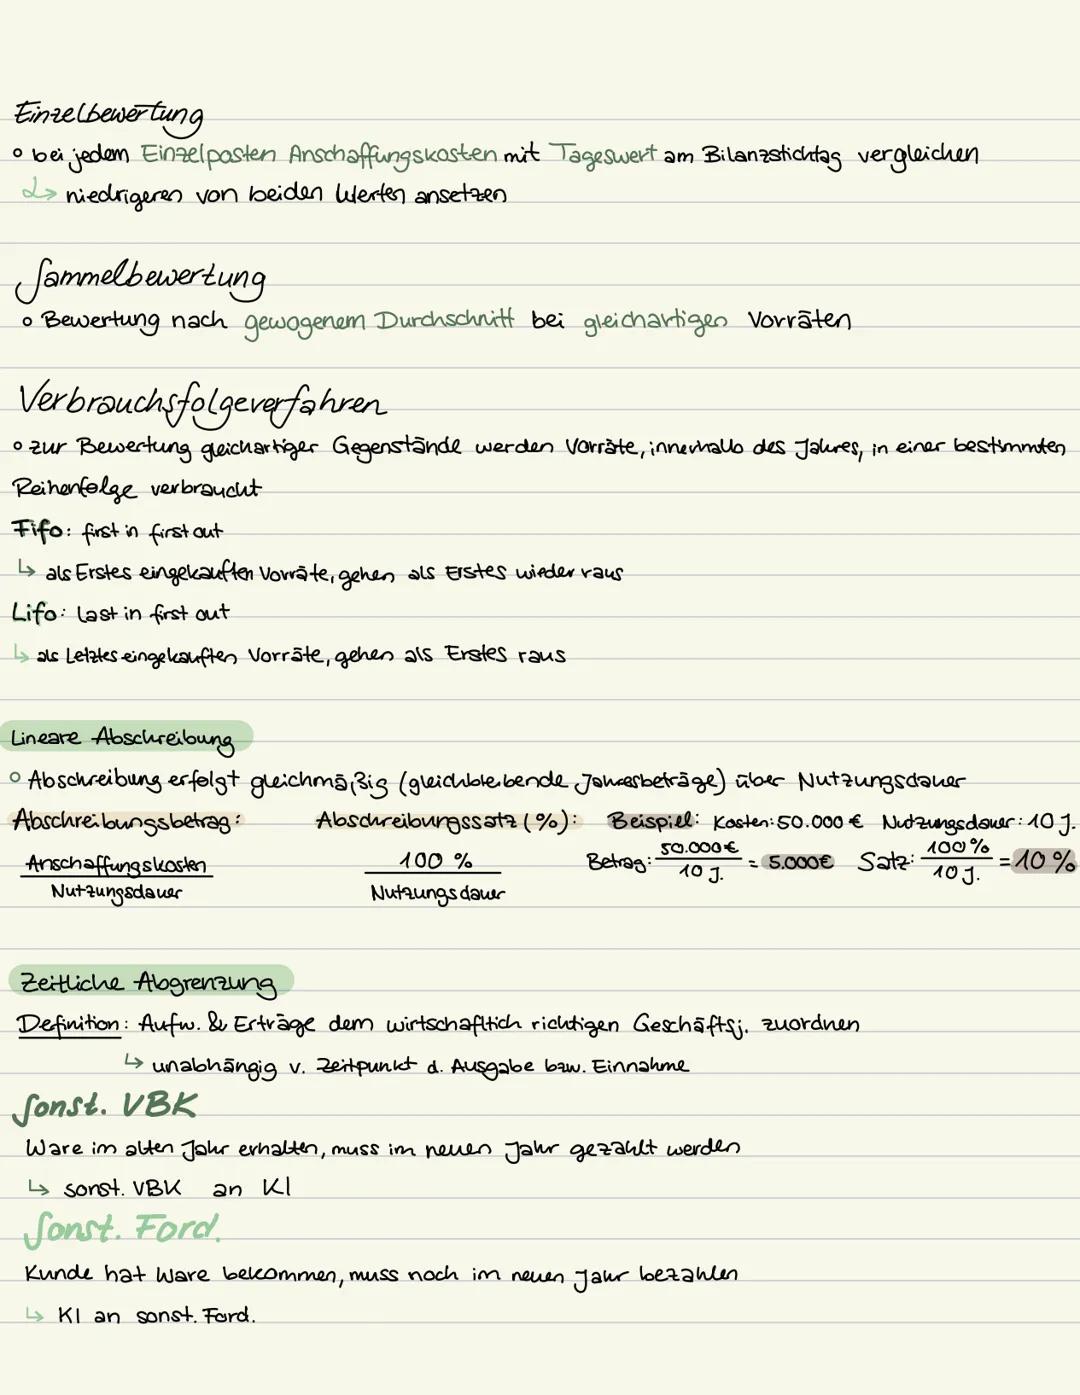 Einzelbewertung
° bei jedem Einzelposten Anschaffungskosten mit Tageswert am Bilanzstichtag vergleichen
↳ niedrigeren von beiden Werten ansetzen
Sammelbewertung
° Bewertung nach gewogenem Durchschnitt bei gleichartigen Vorräten
Verbrauchsfolgeverfahren
° zur Bewertung gleichartiger Gegenstände werden Vorräte, innerhalb des Jahres, in einer bestimmten
Reihenfolge verbraucht
Fifo: first in first out
↳ als Erstes eingekauften Vorräte, gehen als Erstes wieder raus
Lifo: Last in first out
↳ als Letztes eingekauften Vorräte, gehen als Erstes raus
Lineare Abschreibung
° Abschreibung erfolgt gleichmäßig (gleichbleibende Jahresbeträge) über Nutzungsdauer
Abschreibungsbetrag: Abschreibungssatz (%): Beispiel: Kosten: 50.000 € Nutzungsdauer: 10 J.
Anschaffungskosten 100 % Betrag: 50.000 € / 10 J. = 5.000€ Satz: 100 % / 10 J. = 10 %
Nutzungsdauer Nutzungsdauer
Zeitliche Abgrenzung
Definition: Aufw. & Erträge dem wirtschafltich richtigen Geschäftsj. zuordnen
↳ unabhängig v. Zeitpunkt d. Ausgabe bzw. Einnahme
Sonst. VBK
Ware im alten Jahr erhalten, muss im neuen Jahr gezahlt werden
↳ sonst. VBK an KI
Sonst. Ford.
Kunde hat Ware bekommen, muss noch im neuen Jahr bezahlen
↳ KI an sonst. Ford.